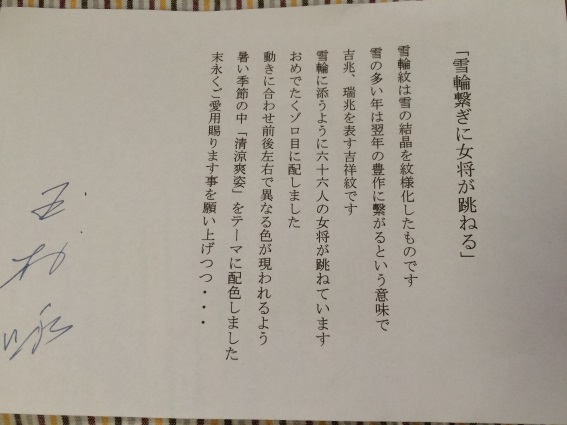 「雪輪繋ぎに女将が跳ねる」
雪輪紋は雪の結晶を紋様化したものです
雪の多い年は翌年の豊作に繋がるという意味で
吉兆、瑞兆を表す吉祥紋です
雪輪に添うように六十六人の女将が跳ねています
おめでたくゾロ目に配しました
動きに合わせ前後左右で異なる色が現われるよう
暑い季節の中「清涼爽姿」をテーマに配色しました
末永くご愛用賜ります事を願い上げつつ・・・
玉村咏